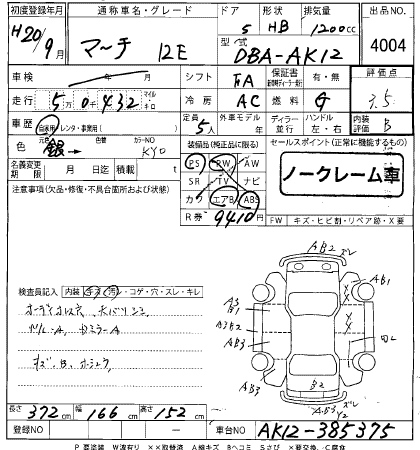 初度登録年月 通称車名・グレード ドア 形状 排気量 出品No.
H20/9月 マーチ 12E 5 HB 1200cc 4004
型式 DBA-AK12
車検 年 月 シフト FA 保証書 有・無 評価点
走行 5万0千432 マイル キロ 冷房 AC 燃料 G 3.5
車歴 自家用・レンタ・事業用( ) 定員 5人 外車モデル 年 ディーラー 並行 ハンドル 左・右 内装評価 B
色 元色 銀 → 色替 カラーNO KY0 装備品(純正品に限る) セールスポイント(正常に機能するもの)
名義変更期限 月 日迄 積載 t PS PW AW
SR TV ナビ ノークレーム車
注意事項(欠品・修復・不具合箇所および状態) カワ エアB ABS
R券 9410円 FW キズ・ヒビ割・リペア跡・X要
AB2
検査員記入 内装 キズ・汚レ・コゲ・穴・スレ・キレ
AB1
A3 B1
A3B2
AB3
AB3
B2
AB3 Y2
長さ 372cm 幅 166cm 高さ 152cm
登録NO ― 車台NO AK12-385375
P 要塗装 W波有り XX取替済 A線キズ Bヘコミ S錆 X要交換、C腐食